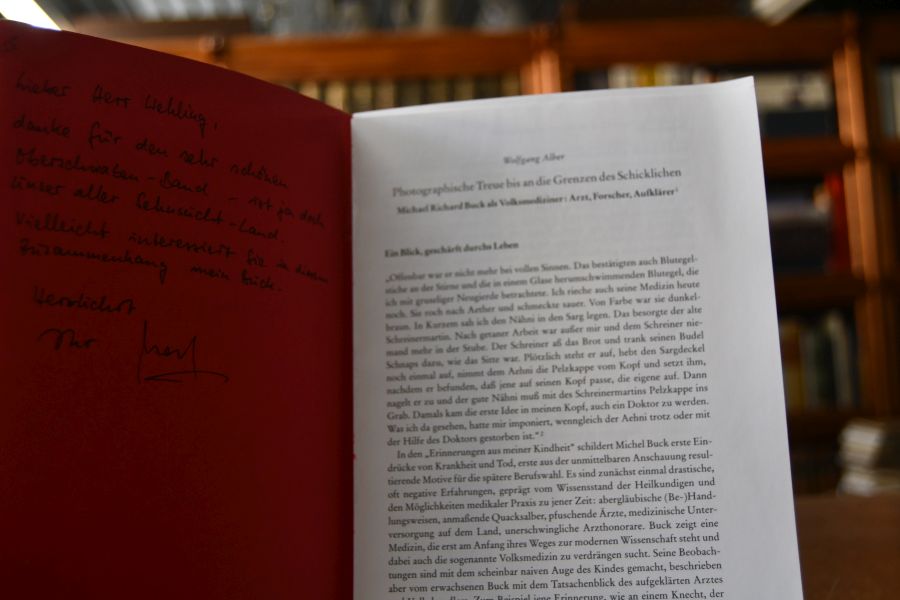 Lieber Herr Wehling,
danke für den sehr schönen
Oberschwaben-Band – ist ja doch
unser aller Sehnsucht-Land.
Vielleicht interessiert Sie in diesem
Zusammenhang mein Buch.
Herzlichst
Ihr
Wolfgang Alber
Photographische Treue bis an die Grenzen des Schicklichen
Michael Richard Buck als Volksmediziner: Arzt, Forscher, Aufklärer¹
Ein Blick, geschärft durchs Leben
„Offenbar war er nicht mehr bei vollen Sinnen. Das bestätigten auch Blutegel-
stiche an der Stirne und die in einem Glase herumschwimmenden Blutegel, die
ich mit gruseliger Neugierde betrachtete. Ich rieche auch seine Medizin heute
noch. Sie roch nach Aether und schmeckte sauer. Von Farbe war sie dunkel-
braun. In Kurzem sah ich den Nähni in den Sarg legen. Das besorgte der alte
Schreinermartin. Nach getaner Arbeit war außer mir und dem Schreiner nie-
mand mehr in der Stube. Der Schreiner aß das Brot und trank seinen Budel
Schnaps dazu, wie das Sitte war. Plötzlich steht er auf, hebt den Sargdeckel
noch einmal auf, nimmt dem Aehni die Pelzkappe vom Kopf und setzt ihm,
nachdem er befunden, daß jene auf seinen Kopf passe, die eigene auf. Dann
nagelt er zu und der gute Nähni muß mit des Schreinermartins Pelzkappe ins
Grab. Damals kam die erste Idee in meinen Kopf, auch ein Doktor zu werden.
Was ich da gesehen, hatte mir imponiert, wenngleich der Aehni trotz oder mit
der Hilfe des Doktors gestorben ist.“²
In den „Erinnerungen aus meiner Kindheit“ schildert Michel Buck erste Ein-
drücke von Krankheit und Tod, erste aus der unmittelbaren Anschauung resul-
tierende Motive für die spätere Berufswahl. Es sind zunächst einmal drastische,
oft negative Erfahrungen, geprägt vom Wissensstand der Heilkundigen und
den Möglichkeiten medikaler Praxis zu jener Zeit: abergläubische (Be-)Hand-
lungsweisen, anmaßende Quacksalber, pfuschende Ärzte, medizinische Unter-
versorgung auf dem Land, unerschwingliche Arzthonorare. Buck zeigt eine
Medizin, die erst am Anfang ihres Weges zur modernen Wissenschaft steht und
dabei auch die sogenannte Volksmedizin zu verdrängen sucht. Seine Beobach-
tungen sind mit dem scheinbar naiven Auge des Kindes gemacht, beschrieben
aber vom erwachsenen Buck mit dem Tatsachenblick des aufgeklärten Arztes
Zum Beispiel jene Erinnerung, wie an einem Knecht, der